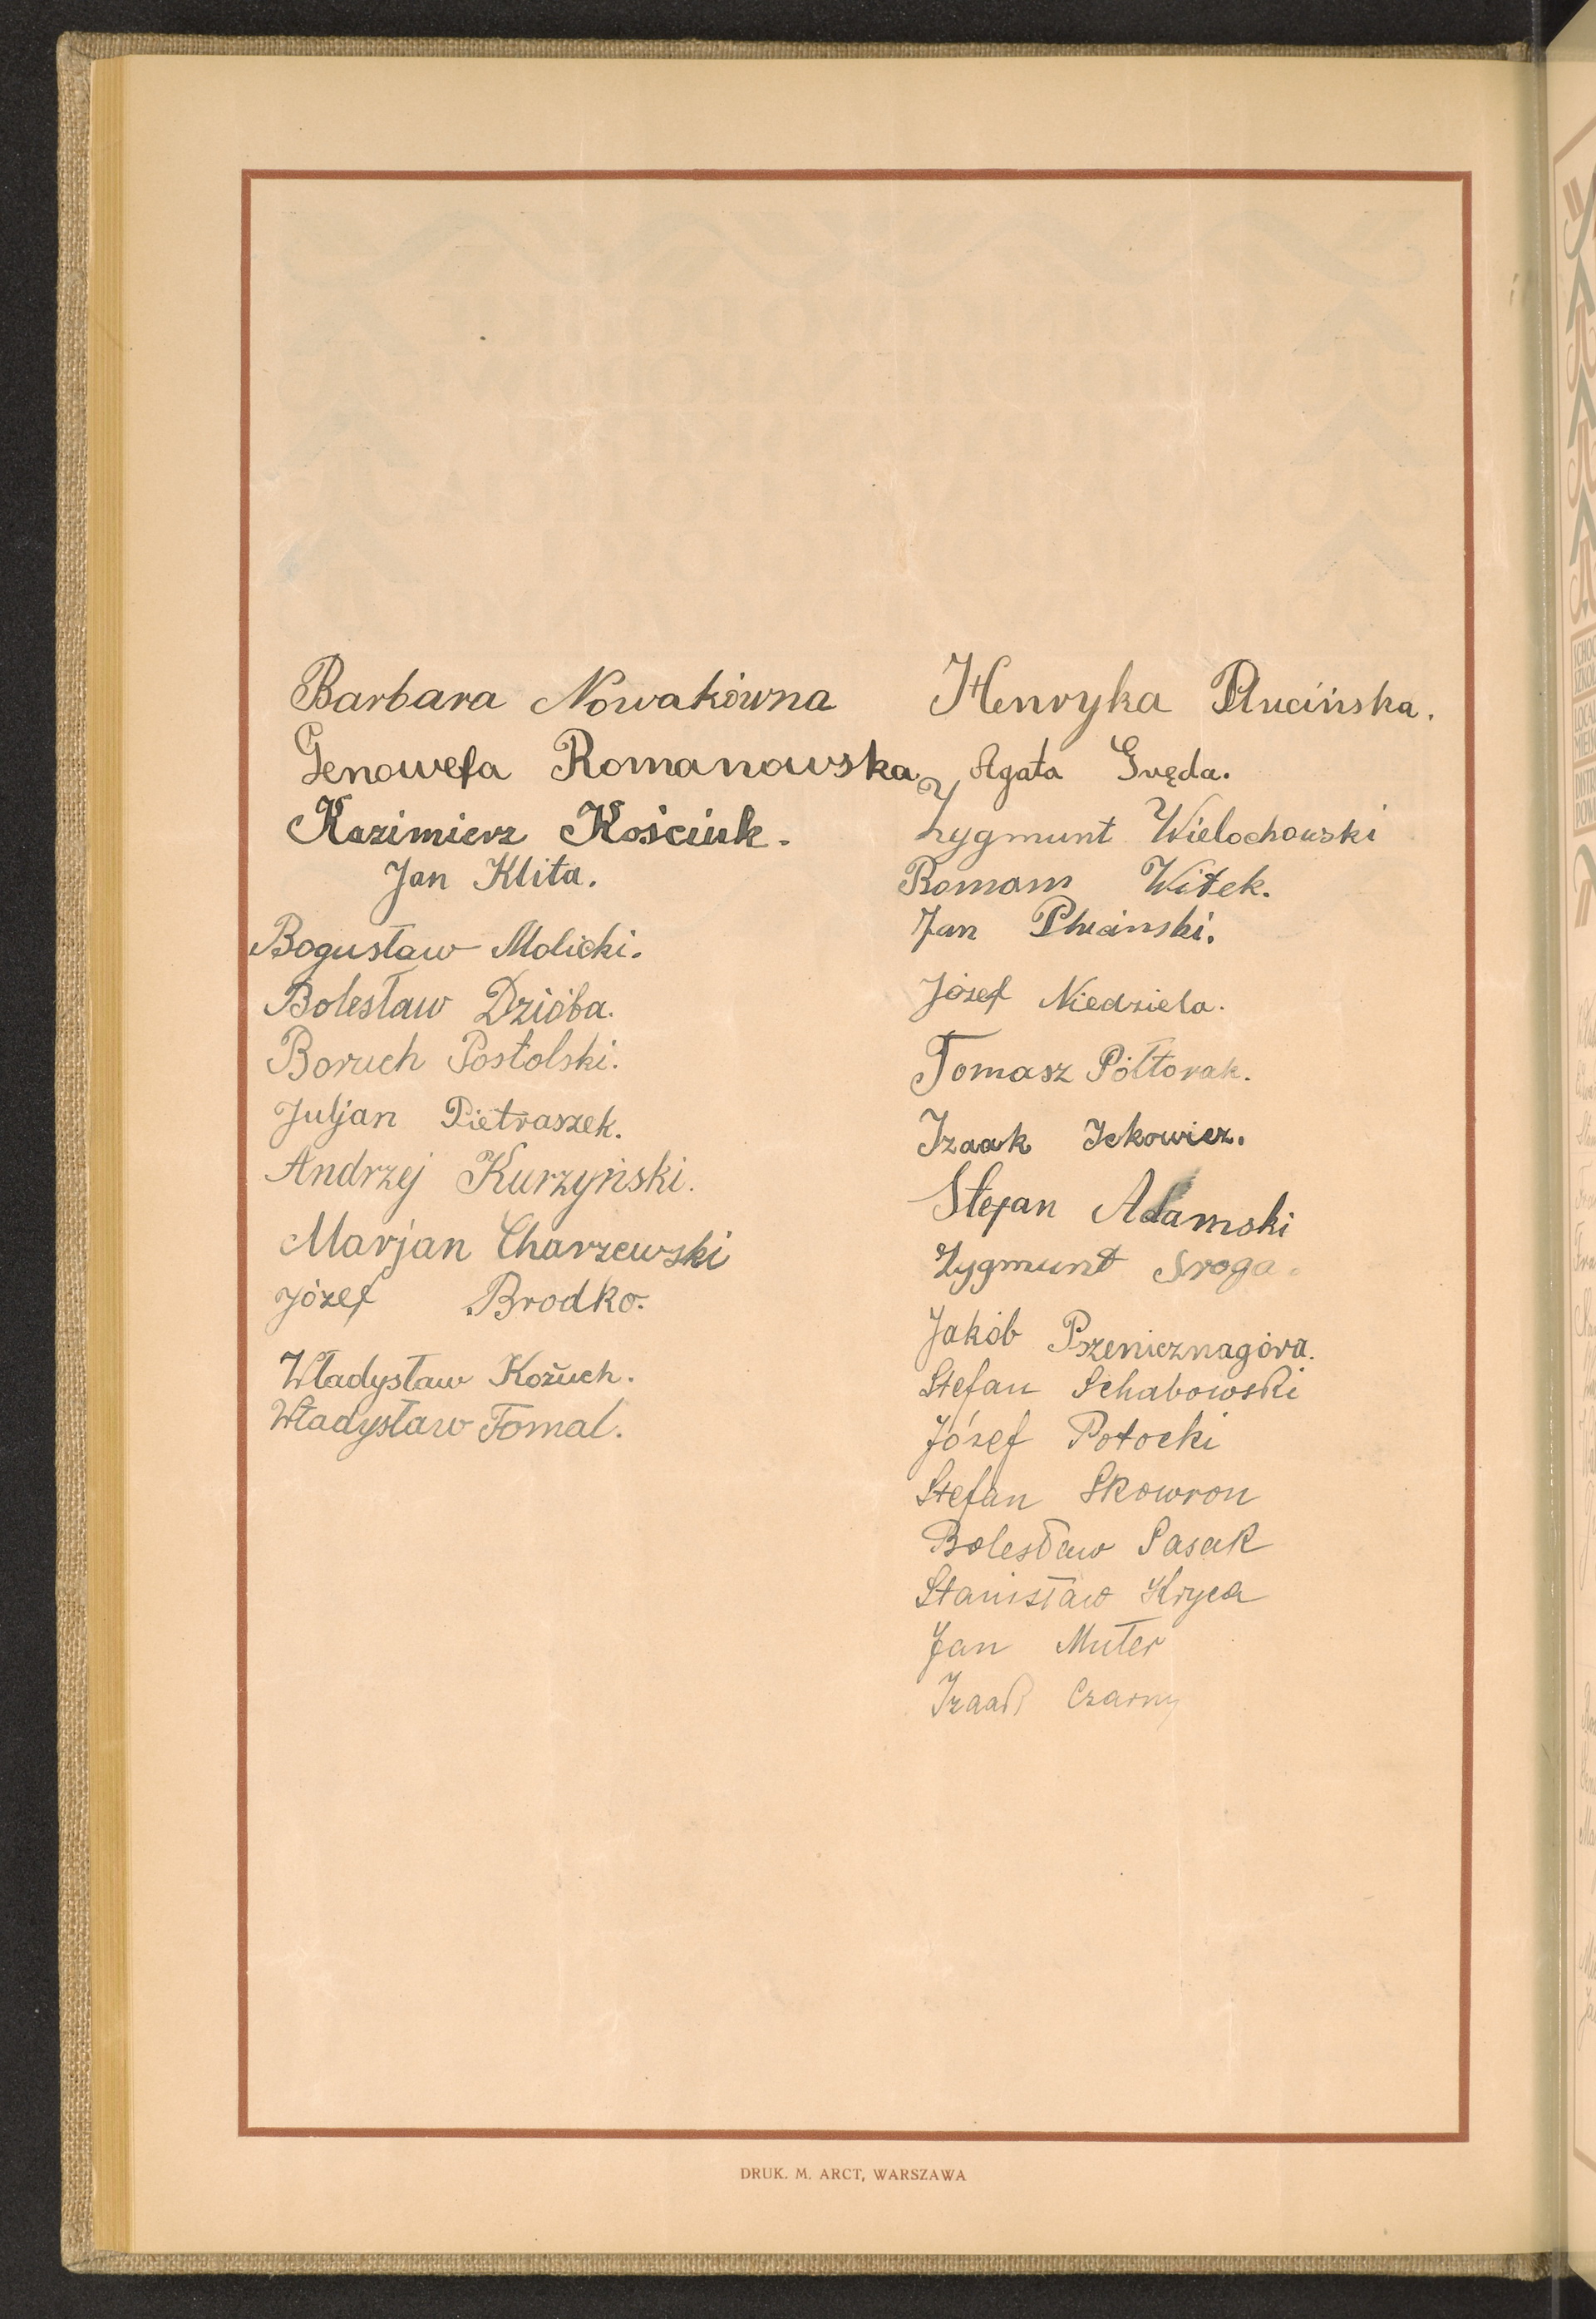 Barbara Nowakówna
Genowefa Romanowska
Kazimierz Kościuk.
Jan Klita.
Bogusław Molicki.
Bolesław Dzióba.
Boruch Postolski.
Juljan Pietraszek.
Andrzej Kurzyński.
Marjan Charzewski
Józef Brodko.
Władysław Kożuch.
Władysław Fomal.
Henryka Plucińska.
Agata Gręda.
Zygmunt Wielochowski
Roman Witek.
Jan Pluciński.
Józef Niedziela.
Tomasz Półtorak.
Izaak Ickowicz.
Stefan Adamski
Zygmunt Sroga.
Jakób Pszenicznagóra.
Stefan Schabowski
Józef Potocki
Stefan Skowron
Bolesław Sasak
Stanisław Kryca
Jan Muter
Izaak Czarny
DRUK. M. ARCT, WARSZAWA